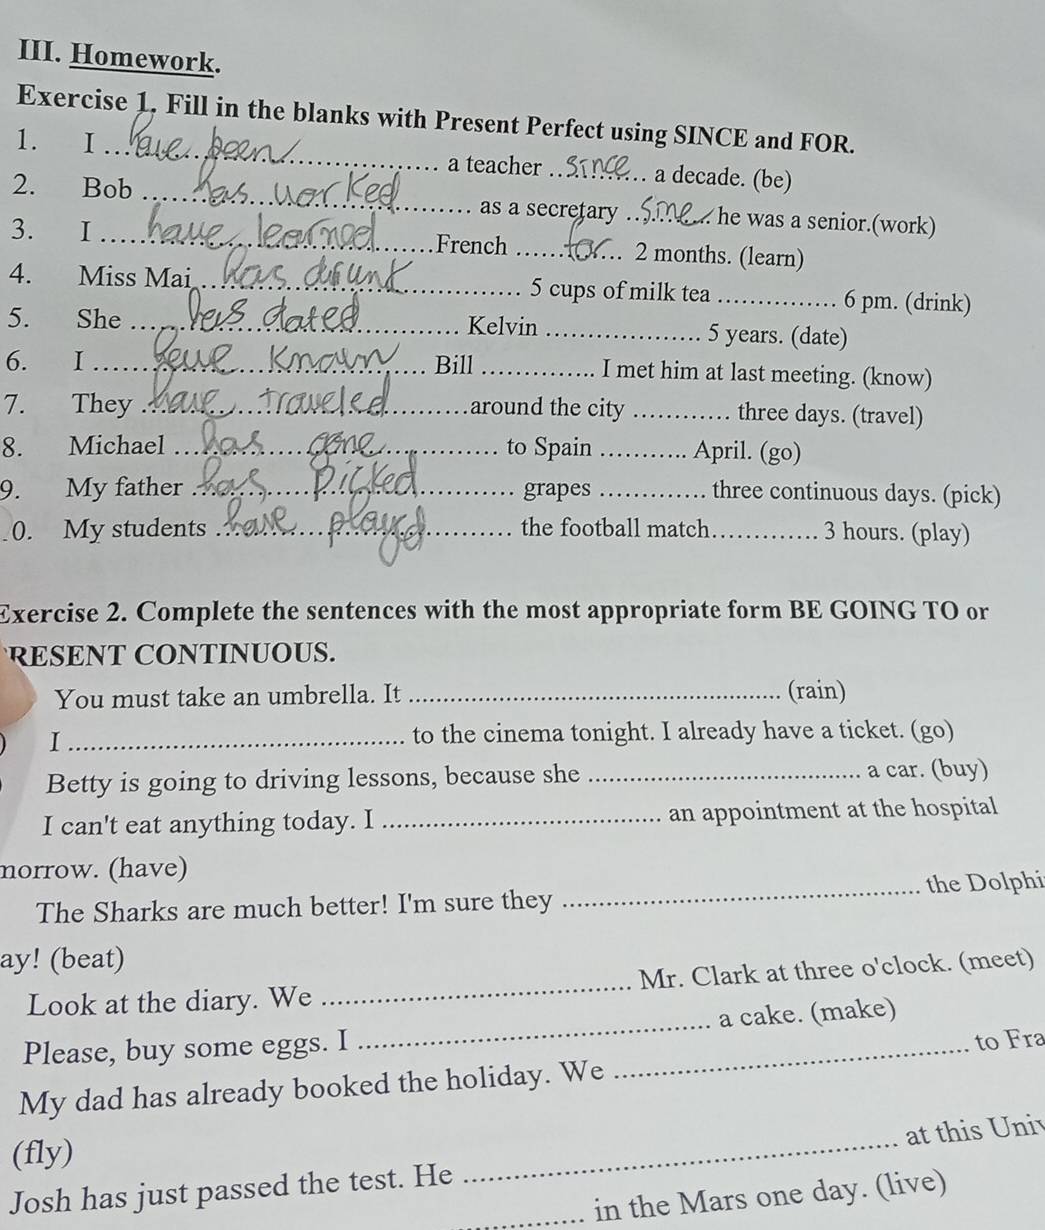 III. Homework.
Exercise 1. Fill in the blanks with Present Perfect using SINCE and FOR.
1. I ...have been... a teacher ...since... a decade. (be)
2. Bob ...has worked... as a secretary ...since... he was a senior.(work)
3. I ...have learned... French ...for... 2 months. (learn)
4. Miss Mai ...has drunk... 5 cups of milk tea ............... 6 pm. (drink)
5. She ...has dated... Kelvin .................... 5 years. (date)
6. I ...have known... Bill ............... I met him at last meeting. (know)
7. They ...have traveled... around the city ............. three days. (travel)
8. Michael ...has gone... to Spain ............ April. (go)
9. My father ...has picked... grapes .............. three continuous days. (pick)
0. My students ...have played... the football match.............. 3 hours. (play)
Exercise 2. Complete the sentences with the most appropriate form BE GOING TO or
RESENT CONTINUOUS.
You must take an umbrella. It .................................................. (rain)
I ............................................. to the cinema tonight. I already have a ticket. (go)
Betty is going to driving lessons, because she .................................... a car. (buy)
I can't eat anything today. I ...................................... an appointment at the hospital
morrow. (have)
The Sharks are much better! I'm sure they ................................................ the Dolphi
ay! (beat)
Look at the diary. We .......................................... Mr. Clark at three o'clock. (meet)
Please, buy some eggs. I ................................................ a cake. (make)
My dad has already booked the holiday. We ................................................ to Fra
(fly)
Josh has just passed the test. He .......................................................... at this Univ
................ in the Mars one day. (live)